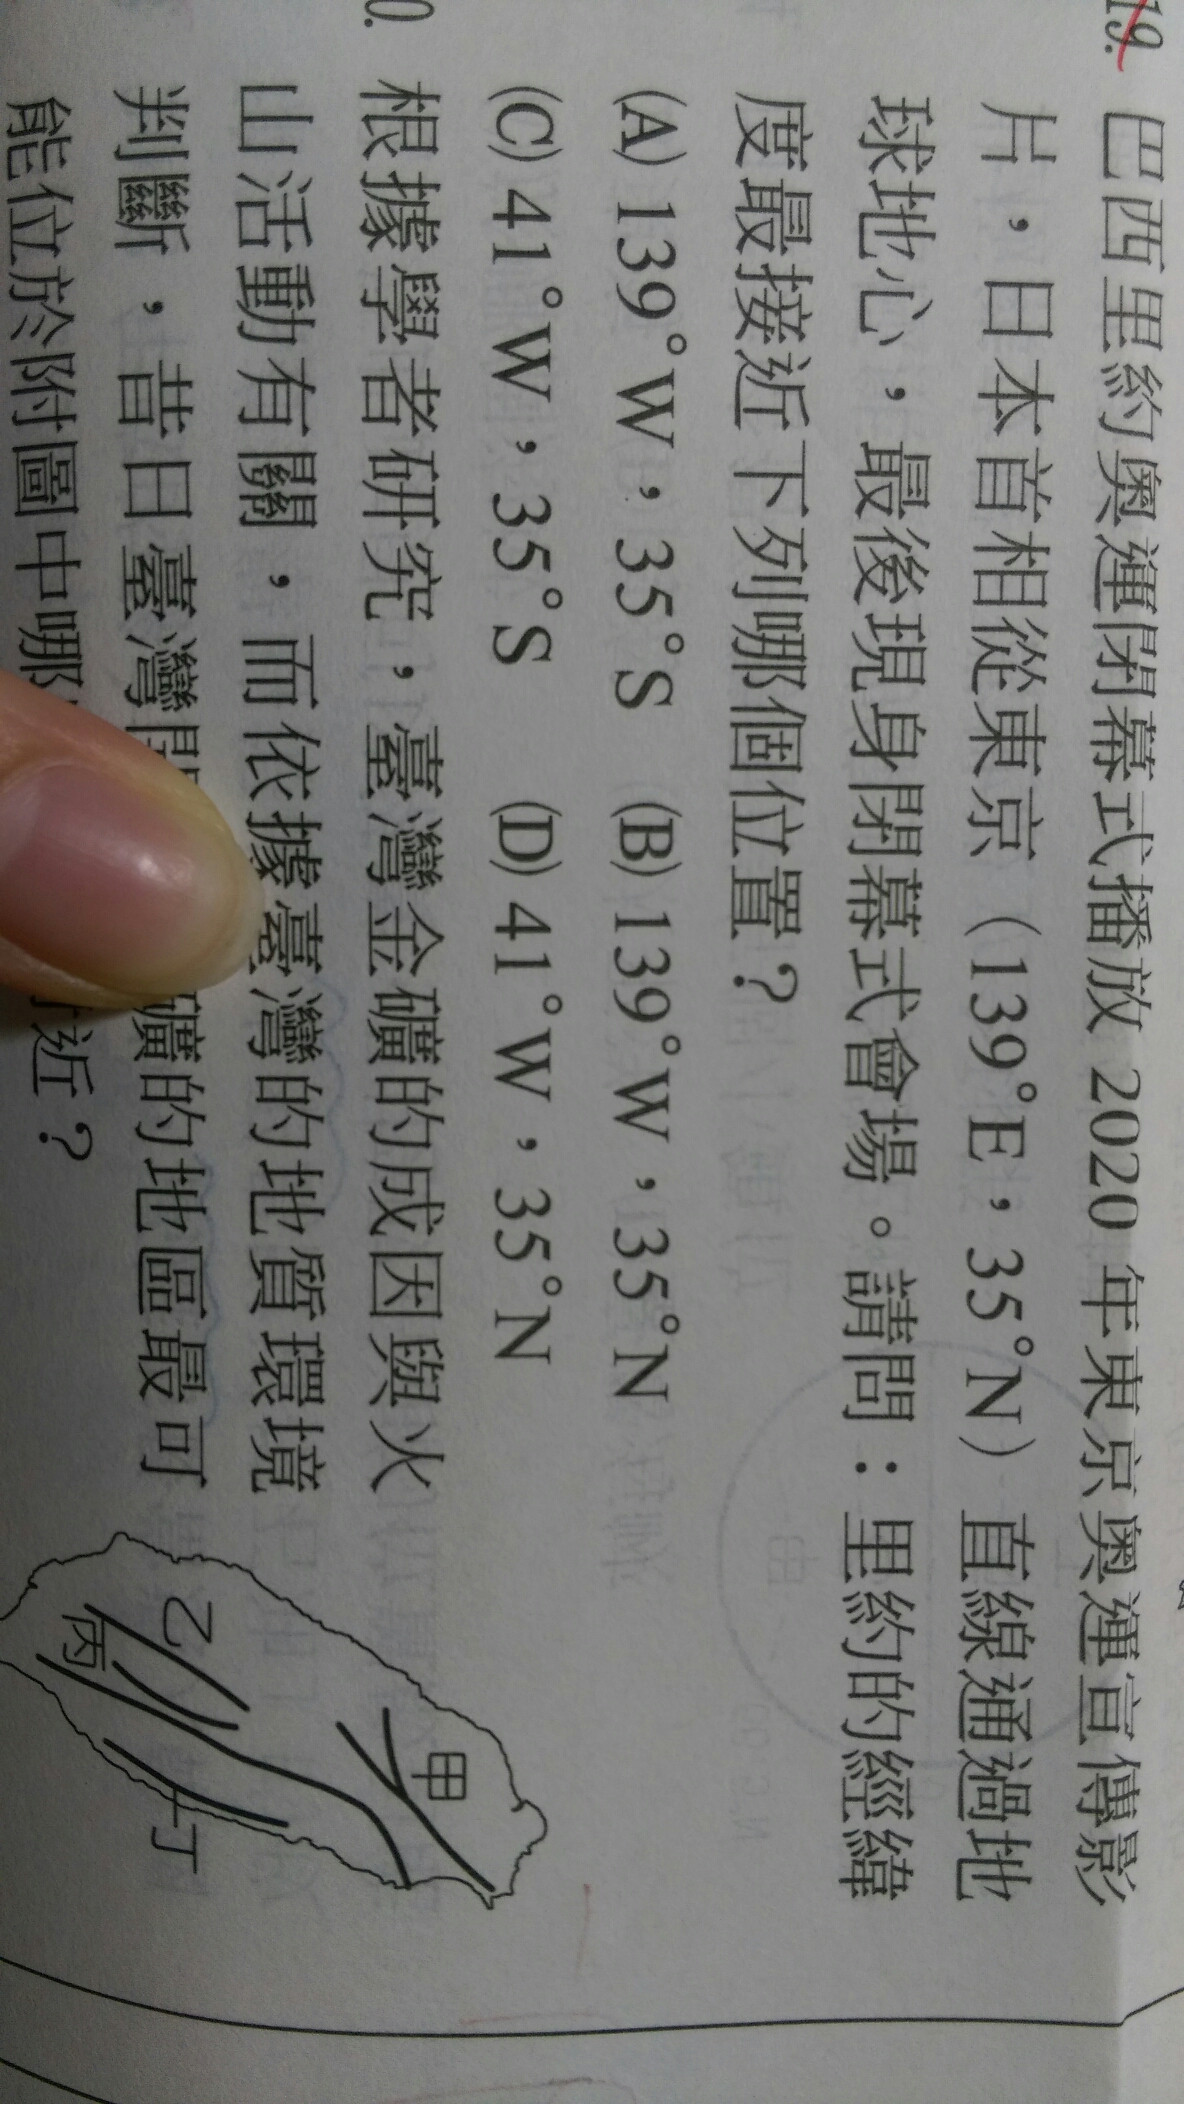 19. 巴西里約奧運閉幕式播放 2020 年東京奧運宣傳影
片，日本首相從東京（139°E，35°N）直線通過地
球地心，最後現身閉幕式會場。請問：里約的經緯
度最接近下列哪個位置？
(A) 139°W，35°S (B) 139°W，35°N
(C) 41°W，35°S (D) 41°W，35°N
0. 根據學者研究，臺灣金礦的成因與火
山活動有關，而依據臺灣的地質環境
判斷，昔日臺灣 礦的地區最可
能位於附圖中哪 近？
甲
乙
丙
丁